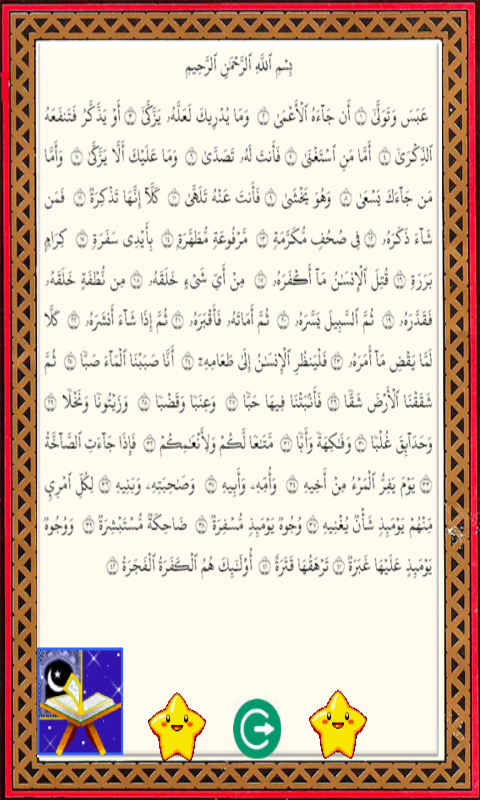 بِسْمِ ٱللَّهِ ٱلرَّحْمَٰنِ ٱلرَّحِيمِ
عَبَسَ وَتَوَلَّىٰٓ ﴿١﴾ أَن جَآءَهُ ٱلْأَعْمَىٰ ﴿٢﴾ وَمَا يُدْرِيكَ لَعَلَّهُۥ يَزَّكَّىٰٓ ﴿٣﴾ أَوْ يَذَّكَّرُ فَتَنفَعَهُ
ٱلذِّكْرَىٰٓ ﴿٤﴾ أَمَّا مَنِ ٱسْتَغْنَىٰ ﴿٥﴾ فَأَنتَ لَهُۥ تَصَدَّىٰ ﴿٦﴾ وَمَا عَلَيْكَ أَلَّا يَزَّكَّىٰ ﴿٧﴾ وَأَمَّا
مَن جَآءَكَ يَسْعَىٰ ﴿٨﴾ وَهُوَ يَخْشَىٰ ﴿٩﴾ فَأَنتَ عَنْهُ تَلَهَّىٰ ﴿١٠﴾ كَلَّآ إِنَّهَا تَذْكِرَةٌ ﴿١١﴾ فَمَن
شَآءَ ذَكَرَهُۥ ﴿١٢﴾ فِى صُحُفٍ مُّكَرَّمَةٍ ﴿١٣﴾ مَّرْفُوعَةٍ مُّطَهَّرَةٍۭ ﴿١٤﴾ بِأَيْدِى سَفَرَةٍ ﴿١٥﴾ كِرَامٍۭ
بَرَرَةٍ ﴿١٦﴾ قُتِلَ ٱلْإِنسَٰنُ مَآ أَكْفَرَهُۥ ﴿١٧﴾ مِنْ أَىِّ شَىْءٍ خَلَقَهُۥ ﴿١٨﴾ مِن نُّطْفَةٍ خَلَقَهُۥ
فَقَدَّرَهُۥ ﴿١٩﴾ ثُمَّ ٱلسَّبِيلَ يَسَّرَهُۥ ﴿٢٠﴾ ثُمَّ أَمَاتَهُۥ فَأَقْبَرَهُۥ ﴿٢١﴾ ثُمَّ إِذَا شَآءَ أَنشَرَهُۥ ﴿٢٢﴾ كَلَّا
لَمَّا يَقْضِ مَآ أَمَرَهُۥ ﴿٢٣﴾ فَلْيَنظُرِ ٱلْإِنسَٰنُ إِلَىٰ طَعَامِهِۦٓ ﴿٢٤﴾ أَنَّا صَبَبْنَا ٱلْمَآءَ صَبًّا ﴿٢٥﴾ ثُمَّ
شَقَقْنَا ٱلْأَرْضَ شَقًّا ﴿٢٦﴾ فَأَنۢبَتْنَا فِيهَا حَبًّا ﴿٢٧﴾ وَعِنَبًا وَقَضْبًا ﴿٢٨﴾ وَزَيْتُونًا وَنَخْلًا ﴿٢٩﴾
وَحَدَآئِقَ غُلْبًا ﴿٣٠﴾ وَفَٰكِهَةً وَأَبًّا ﴿٣١﴾ مَّتَٰعًا لَّكُمْ وَلِأَنْعَٰمِكُمْ ﴿٣٢﴾ فَإِذَا جَآءَتِ ٱلصَّآخَّةُ
﴿٣٣﴾ يَوْمَ يَفِرُّ ٱلْمَرْءُ مِنْ أَخِيهِ ﴿٣٤﴾ وَأُمِّهِۦ وَأَبِيهِ ﴿٣٥﴾ وَصَٰحِبَتِهِۦ وَبَنِيهِ ﴿٣٦﴾ لِكُلِّ ٱمْرِئٍ
مِّنْهُمْ يَوْمَئِذٍ شَأْنٌ يُغْنِيهِ ﴿٣٧﴾ وُجُوهٌ يَوْمَئِذٍ مُّسْفِرَةٌ ﴿٣٨﴾ ضَاحِكَةٌ مُّسْتَبْشِرَةٌ ﴿٣٩﴾ وَوُجُوهٌ
يَوْمَئِذٍ عَلَيْهَا غَبَرَةٌ ﴿٤٠﴾ تَرْهَقُهَا قَتَرَةٌ ﴿٤١﴾ أُو۟لَٰٓئِكَ هُمُ ٱلْكَفَرَةُ ٱلْفَجَرَةُ ﴿٤٢﴾